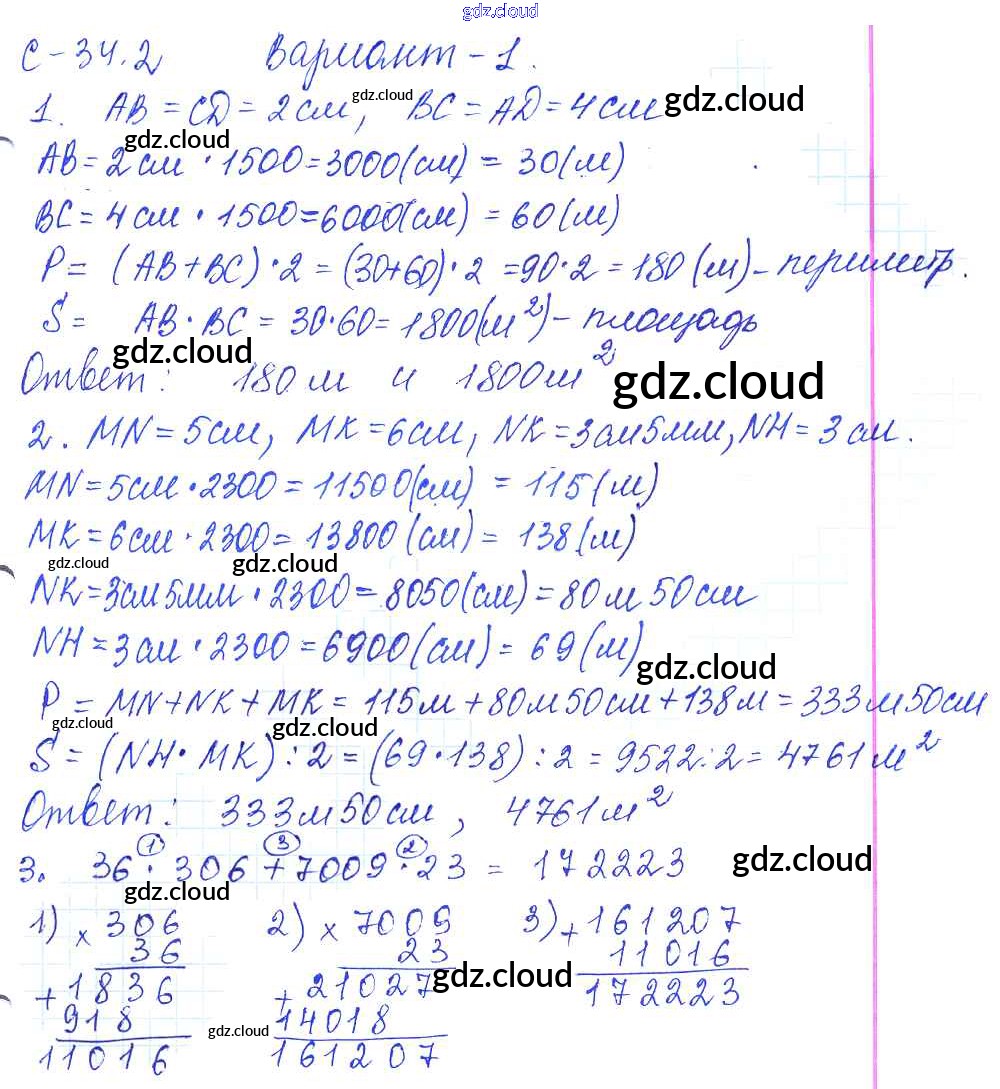 gdz.cloud
С-34.2 Вариант-1.
1. AB = CD = 2 см, gdz.cloud BC = AD = 4 см gdz.cloud
gdz.cloud
AB = 2 см · 1500 = 3000 (см) = 30 (м)
BC = 4 см · 1500 = 6000 (см) = 60 (м)
P = (AB + BC) · 2 = (30+60) · 2 = 90 · 2 = 180 (м) - периметр.
S = AB · BC = 30 · 60 = 1800 (м²) - площадь
gdz.cloud
Ответ: 180 м и 1800 м² gdz.cloud
2. MN = 5 см, MK = 6 см, NK = 3 см 5 мм, NH = 3 см.
MN = 5 см · 2300 = 11500 (см) = 115 (м)
MK = 6 см · 2300 = 13800 (см) = 138 (м)
gdz.cloud gdz.cloud
NK = 3 см 5 мм · 2300 = 8050 (см) = 80 м 50 см
NH = 3 см · 2300 = 6900 (см) = 69 (м)
gdz.cloud
P = MN + NK + MK = 115 м + 80 м 50 см + 138 м = 333 м 50 см
gdz.cloud gdz.cloud
S = (NH · MK) : 2 = (69 · 138) : 2 = 9522 : 2 = 4761 м²
Ответ: 333 м 50 см, 4761 м²
1 3 2
3. 36 · 306 + 7009 · 23 = 172223 gdz.cloud
gdz.cloud
1) × 306 2) × 7009 3) + 161207
36 23 11016
+ 1836 + 21027 gdz.cloud 172223
918 14018
gdz.cloud
11016 161207